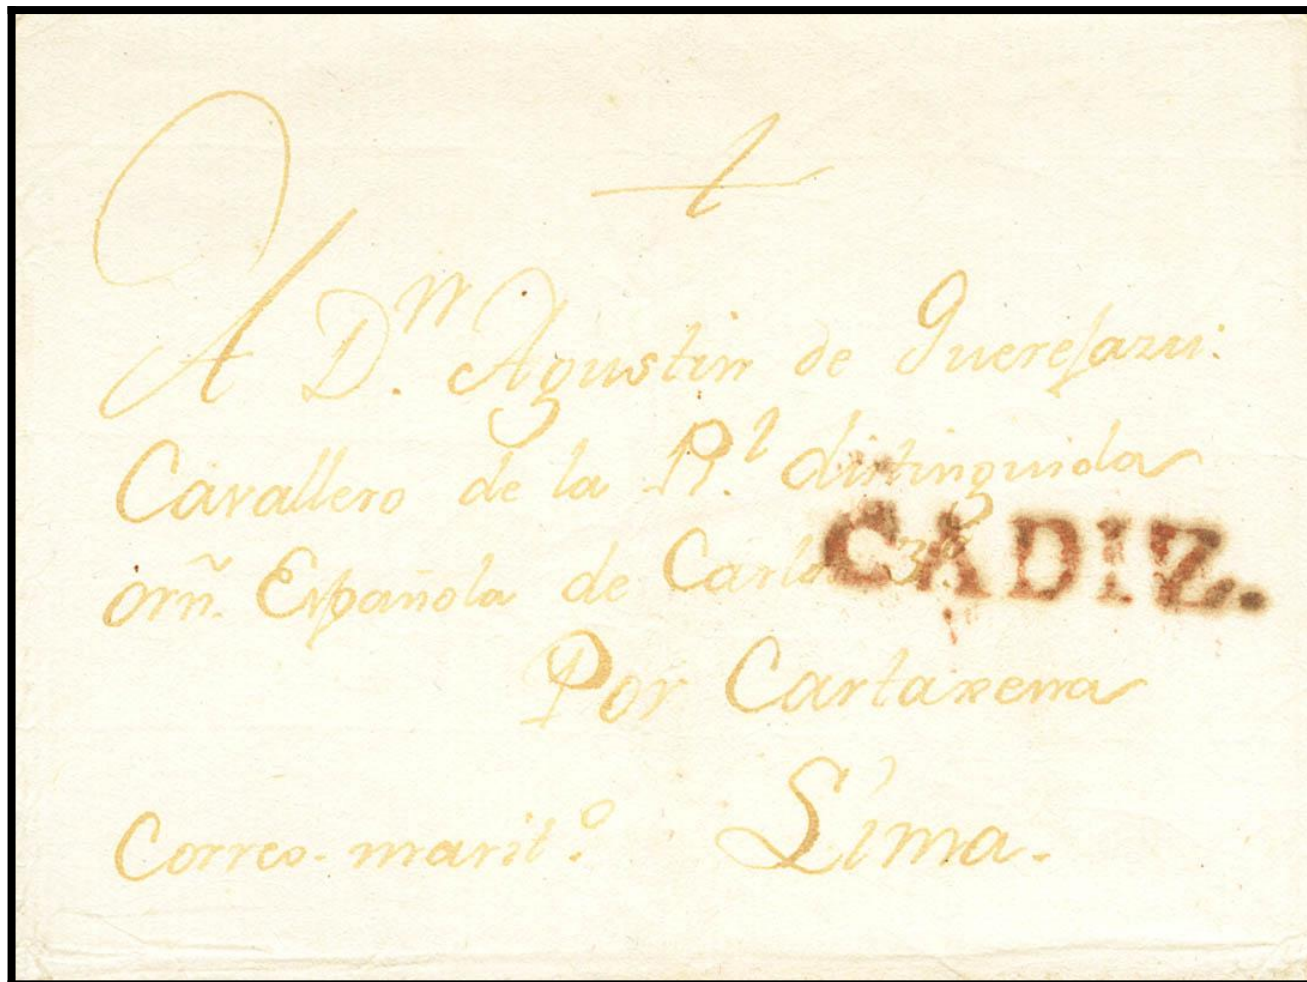 A D.n Agustin de Querejazu.
Cavallero de la R.l distinguida
orñ. Española de Carlos 3.º
CADIZ.
Por Cartaxena
Correo-marit.º Lima.